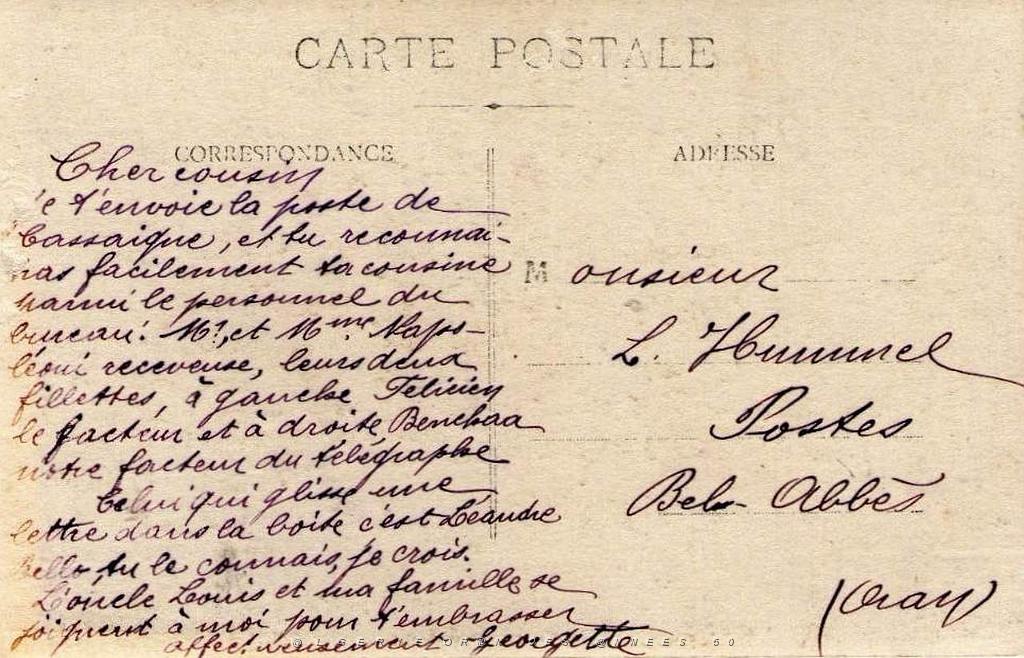 CARTE POSTALE
CORRESPONDANCE
Cher cousin
je t'envoie la poste de
Cassaigne, et tu reconnai-
tras facilement ta cousine
parmi le personnel du
bureau. Mr, et Mme Napo-
léoni receveuse, leurs deux
fillettes, à gauche Félicien
le facteur et à droite Benchaa
notre facteur du télégraphe
Celui qui glisse une
lettre dans la boite c'est Léandre
tu le connais, je crois.
L'oncle Louis et ma famille se
joignent à moi pour t'embrasser
affectueusement Georgette
ADRESSE
Monsieur
L. Hummel
Postes
Bel-Abbès
(Oran)